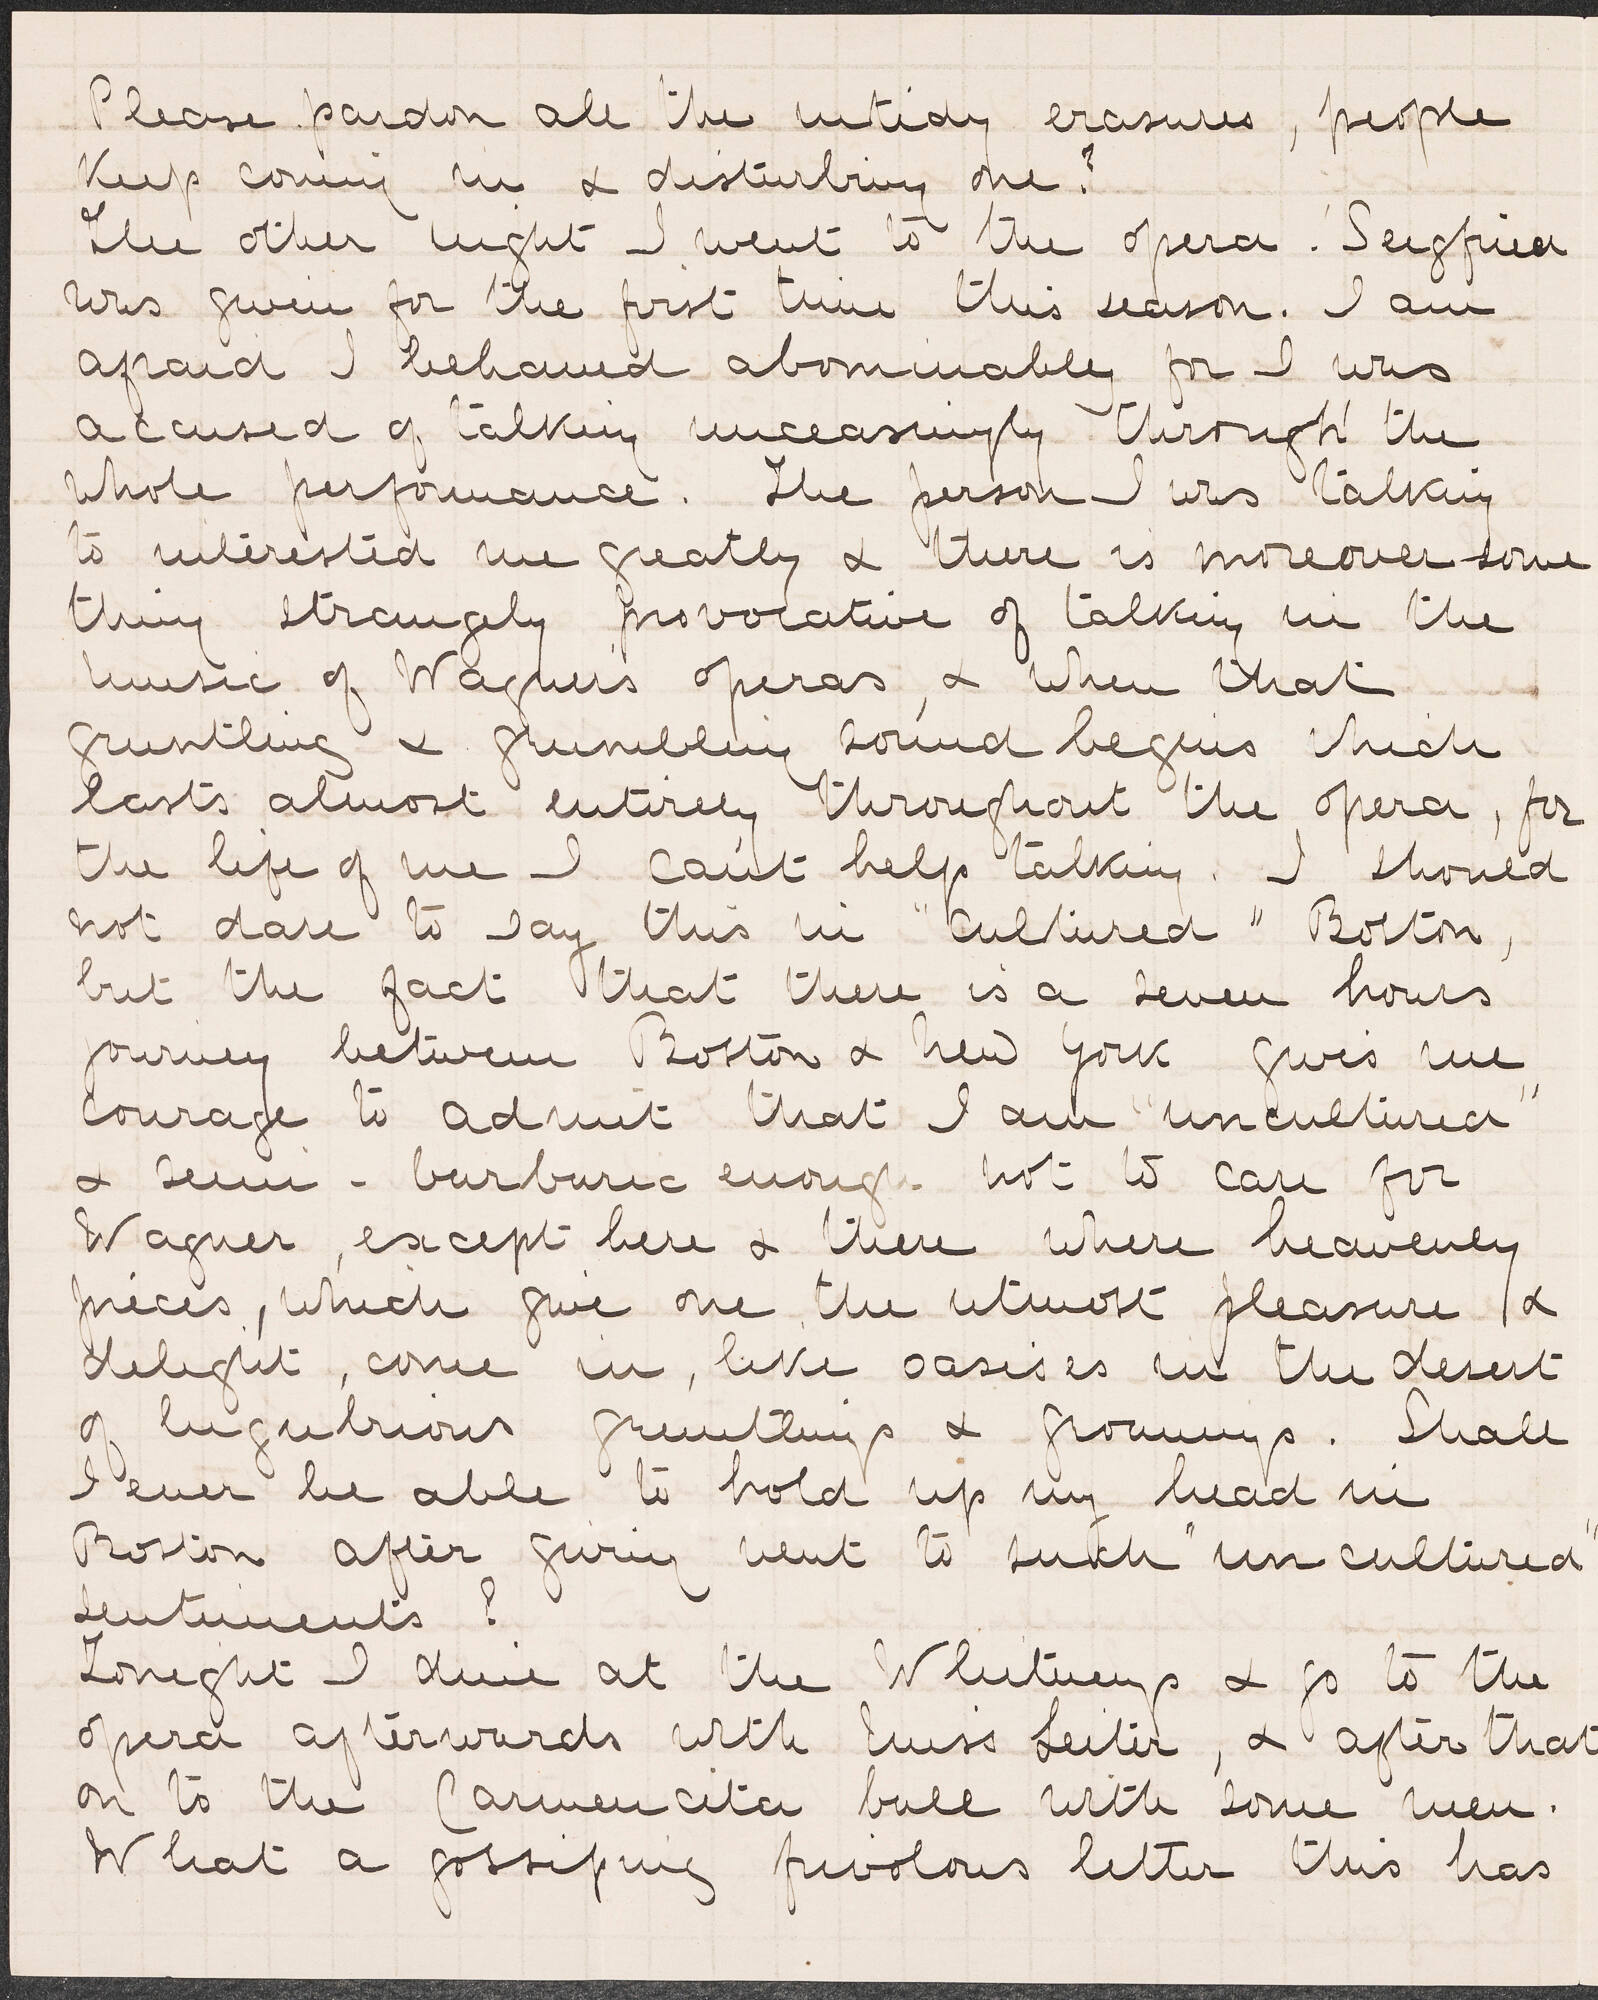 Please pardon all the untidy erasures, people
keep coming in & disturbing one?
The other night I went to the opera. Seigfried
was given for the first time this season. I am
afraid I behaved abominably for I was
accused of talking unceasingly through the
whole performance. The person I was talking
to interested me greatly & there is moreover some
thing strangely provocative of talking in the
music of Wagner's operas, & when that
gruntling & grumbling sound begins which
lasts almost entirely throughout the opera, for
the life of me I can't help talking. I should
not dare to say this in "cultured" Boston,
but the fact that there is a seven hours
journey between Boston & New York gives me
courage to admit that I am "uncultured"
& semi-barbaric enough not to care for
Wagner, except here & there where heavenly
pieces, which give one the utmost pleasure &
delight, come in, like oasises in the desert
of lugubrious gruntlings & groanings. Shall
I ever be able to hold up my head in
Boston after giving vent to such "uncultured"
sentiments?
Tonight I dine at the Whitneys & go to the
opera afterwards with Miss Leiter, & after that
on to the Carmencita ball with some men.
What a gossiping frivolous letter this has